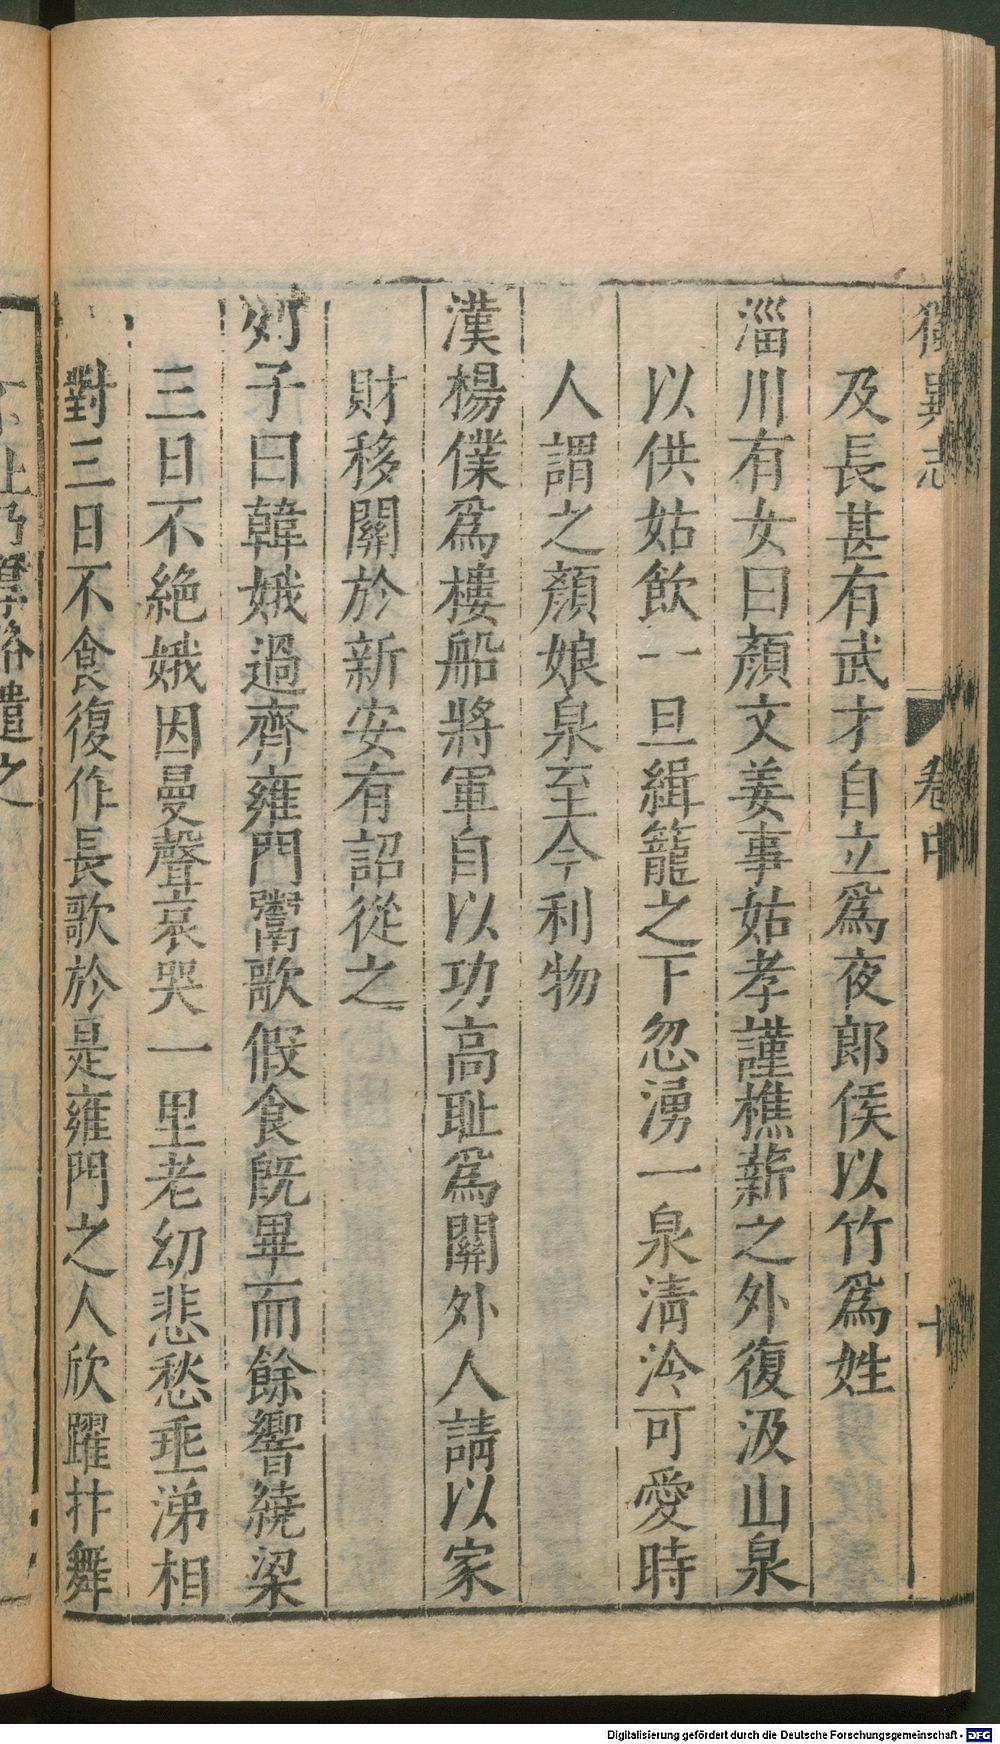 獨異志 卷中 十
及長甚有武才自立爲夜郎侯以竹爲姓
淄川有女曰顏文姜事姑孝謹樵薪之外復汲山泉
以供姑飲一旦緝籠之下忽湧一泉淸泠可愛時
人謂之顏娘泉至今利物
漢楊僕爲樓船將軍自以功高耻爲關外人請以家
財移關於新安有詔從之
列子曰韓娥過齊雍門鬻歌假食旣畢而餘響繞梁
三日不絶娥因曼聲哀哭一里老幼悲愁垂涕相
對三日不食復作長歌於是雍門之人欣躍抃舞
遣之
Digitalisierung gefördert durch die Deutsche Forschungsgemeinschaft - DFG